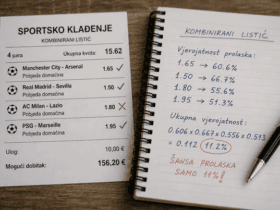 SPORTSKO KLAĐENJE
KOMBINIRANI LISTIĆ
4 para Ukupna kvota: 15.62
Manchester City - Arsenal 1.65 ✓
Pobjeda domaćina
Real Madrid - Sevilla 1.50 ✓
Pobjeda domaćina
AC Milan - Lazio 1.80 ✗
Pobjeda domaćina
PSG - Marseille 1.95 ✓
Pobjeda domaćina
Ulog: 10,00 €
Mogući dobitak: 156,20 €
KOMBINIRANI LISTIĆ
Vjerojatnost prolaska:
1.65 → 60.6%
1.50 → 66.7%
1.80 → 55.6%
1.95 → 51.3%
Ukupna vjerojatnost:
0.606 x 0.667 x 0.556 x 0.513
= 0.112 11.2%
ŠANSA PROLASKA
SAMO 11%!